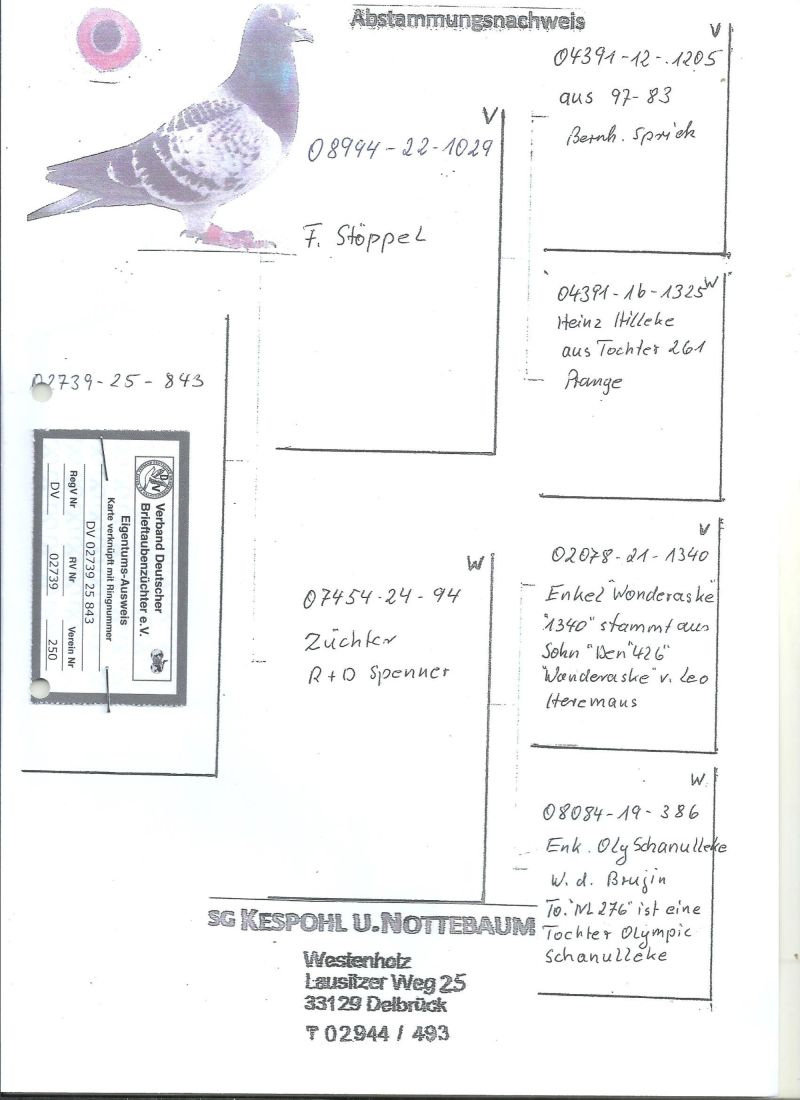 Abstammungsnachweis
V
08944-22-1029
F. Stöppel
V
04391-12-1205
aus 97-83
Bernh. Sprick
W
04391-16-1325
Heinz Hilleke
aus Tochter 261
Prange
02739-25-843
Verband Deutscher
Brieftaubenzüchter e.V.
Eigentums-Ausweis
Karte verknüpft mit Ringnummer
DV 02739 25 843
RegV Nr RV Nr Verein Nr
DV 02739 250
W
07454-24-94
Züchter
R+D Spenner
V
02078-21-1340
Enkel "Wonderaske"
"1340" stammt aus
Sohn "Ben" 426"
"Wonderaske" v. Leo
Heremans
W.
08084-19-386
Enk. Oly Schanulleke
W. d. Brujin
To. "NL 276" ist eine
Tochter Olympic
Schanulleke
SG KESPOHL U. NOTTEBAUM
Westenholz
Lausitzer Weg 25
33129 Delbrück
T 02944 / 493